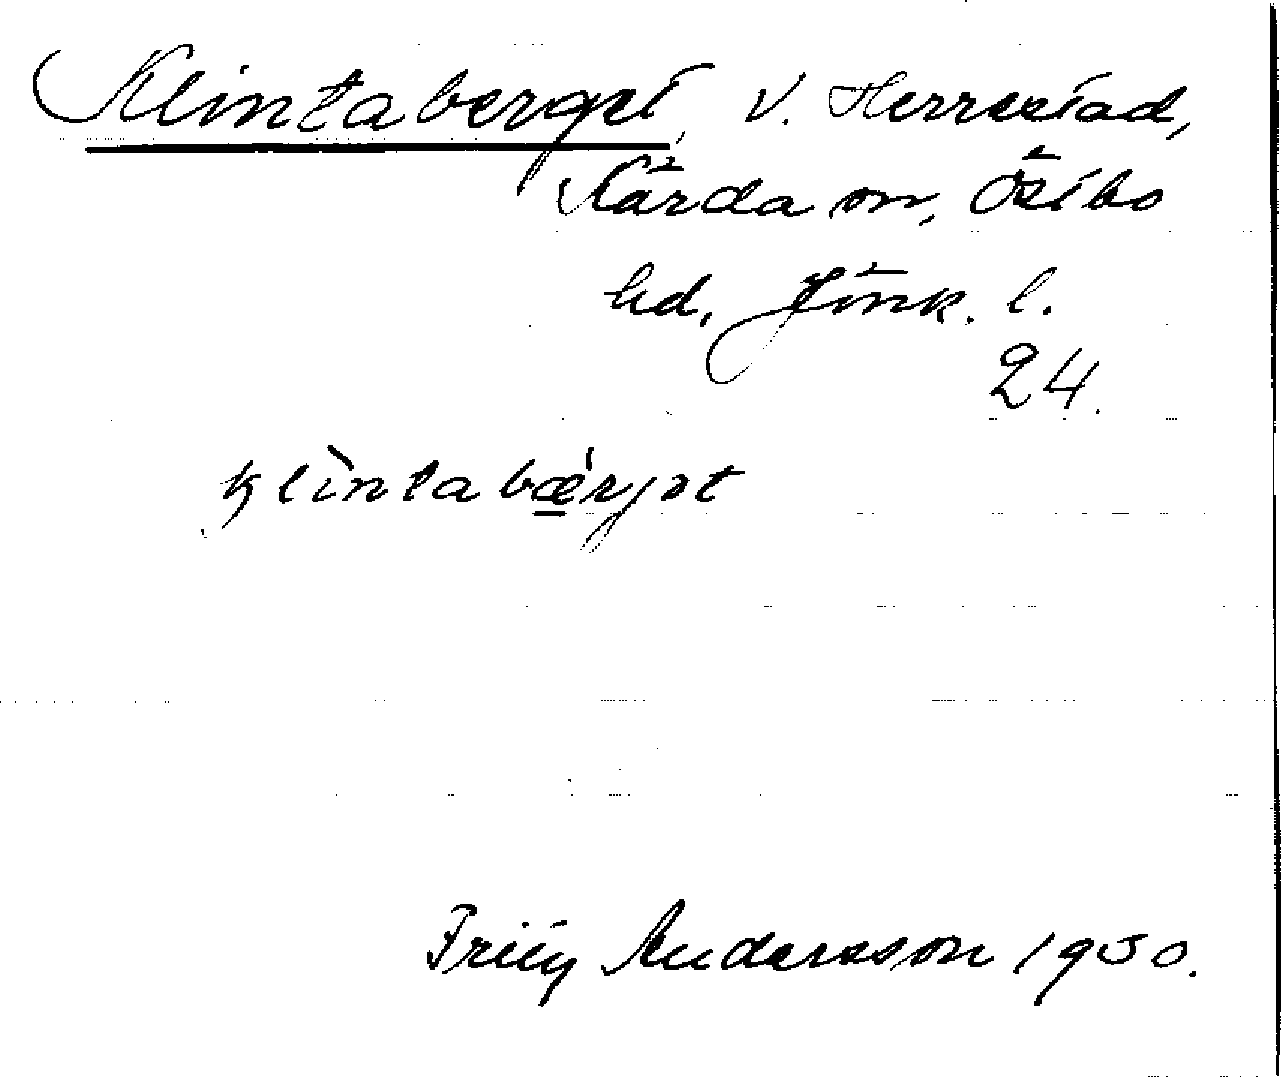 Klintaberget, V. Herrestad,
Kärda sn, Östbo
hd, Jönk. l.
24.
klìntabǽrjət
Fritz Andersson 1930.